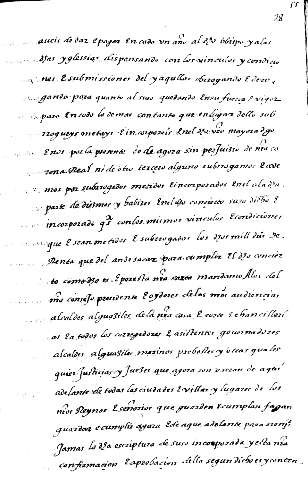 55
28
aueis de dar e pagar en cada un año al dho obispo y a las
dhas yglesias dispensando con los vinculos y condicio
nes e submissiones del y aquellas obrogando e dero
gando para quanto al suso quedando en su fuerça e vigor
para en todo lo demas con tanto que en lugar dello sub
roguays metays e incorporeis en el dho vro mayoradgo
e nos por la presente de agora sin perjuizio de nra co
rona Real ni de otro tercero alguno subrogamos e ave
mos por subrogados metidos e incorporados en el a la dha
parte de diezmos y en el dho conçierto suso dicho e
incorporado con los mismos vinculos e condiciones
que estan metidos e subrogados los dhos mill de
Renta que del an de sacar para cumplir el dho concier
to como dho es. E por esta nra carta mandamos a los del
nro consejo presidente e oydores de las nras audiencias
alcaldes alguaziles de la nra casa e corte e chancilleri
as e a todos los corregidores e asistentes gouernadores
alcaldes alguaziles merinos prebostes y otras quales
quier Justicias y Juezes que agora son o seran de aqui
adelante de todas las ciudades e villas y lugares de los
nros Reynos e señorios que guarden e cumplan fagan
guardar e cumplir agora e de aqui adelante para siempre
Jamas la dha escriptura de suso incorporada y esta nra
confirmacion e aprobacion della segun dicho es y conten